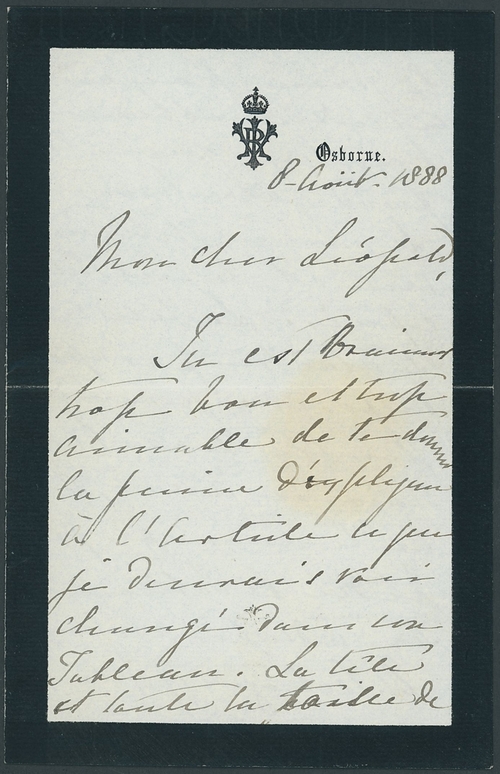 VRI
Osborne.
8 Août. 1888
Mon cher Léopold,
Tu es vraiment
trop bon et trop
aimable de te donner
la peine d'expliquer
à l'Artiste ce que
je denrais voir
changé dans un
Tableau. La tête
et toute la taille de